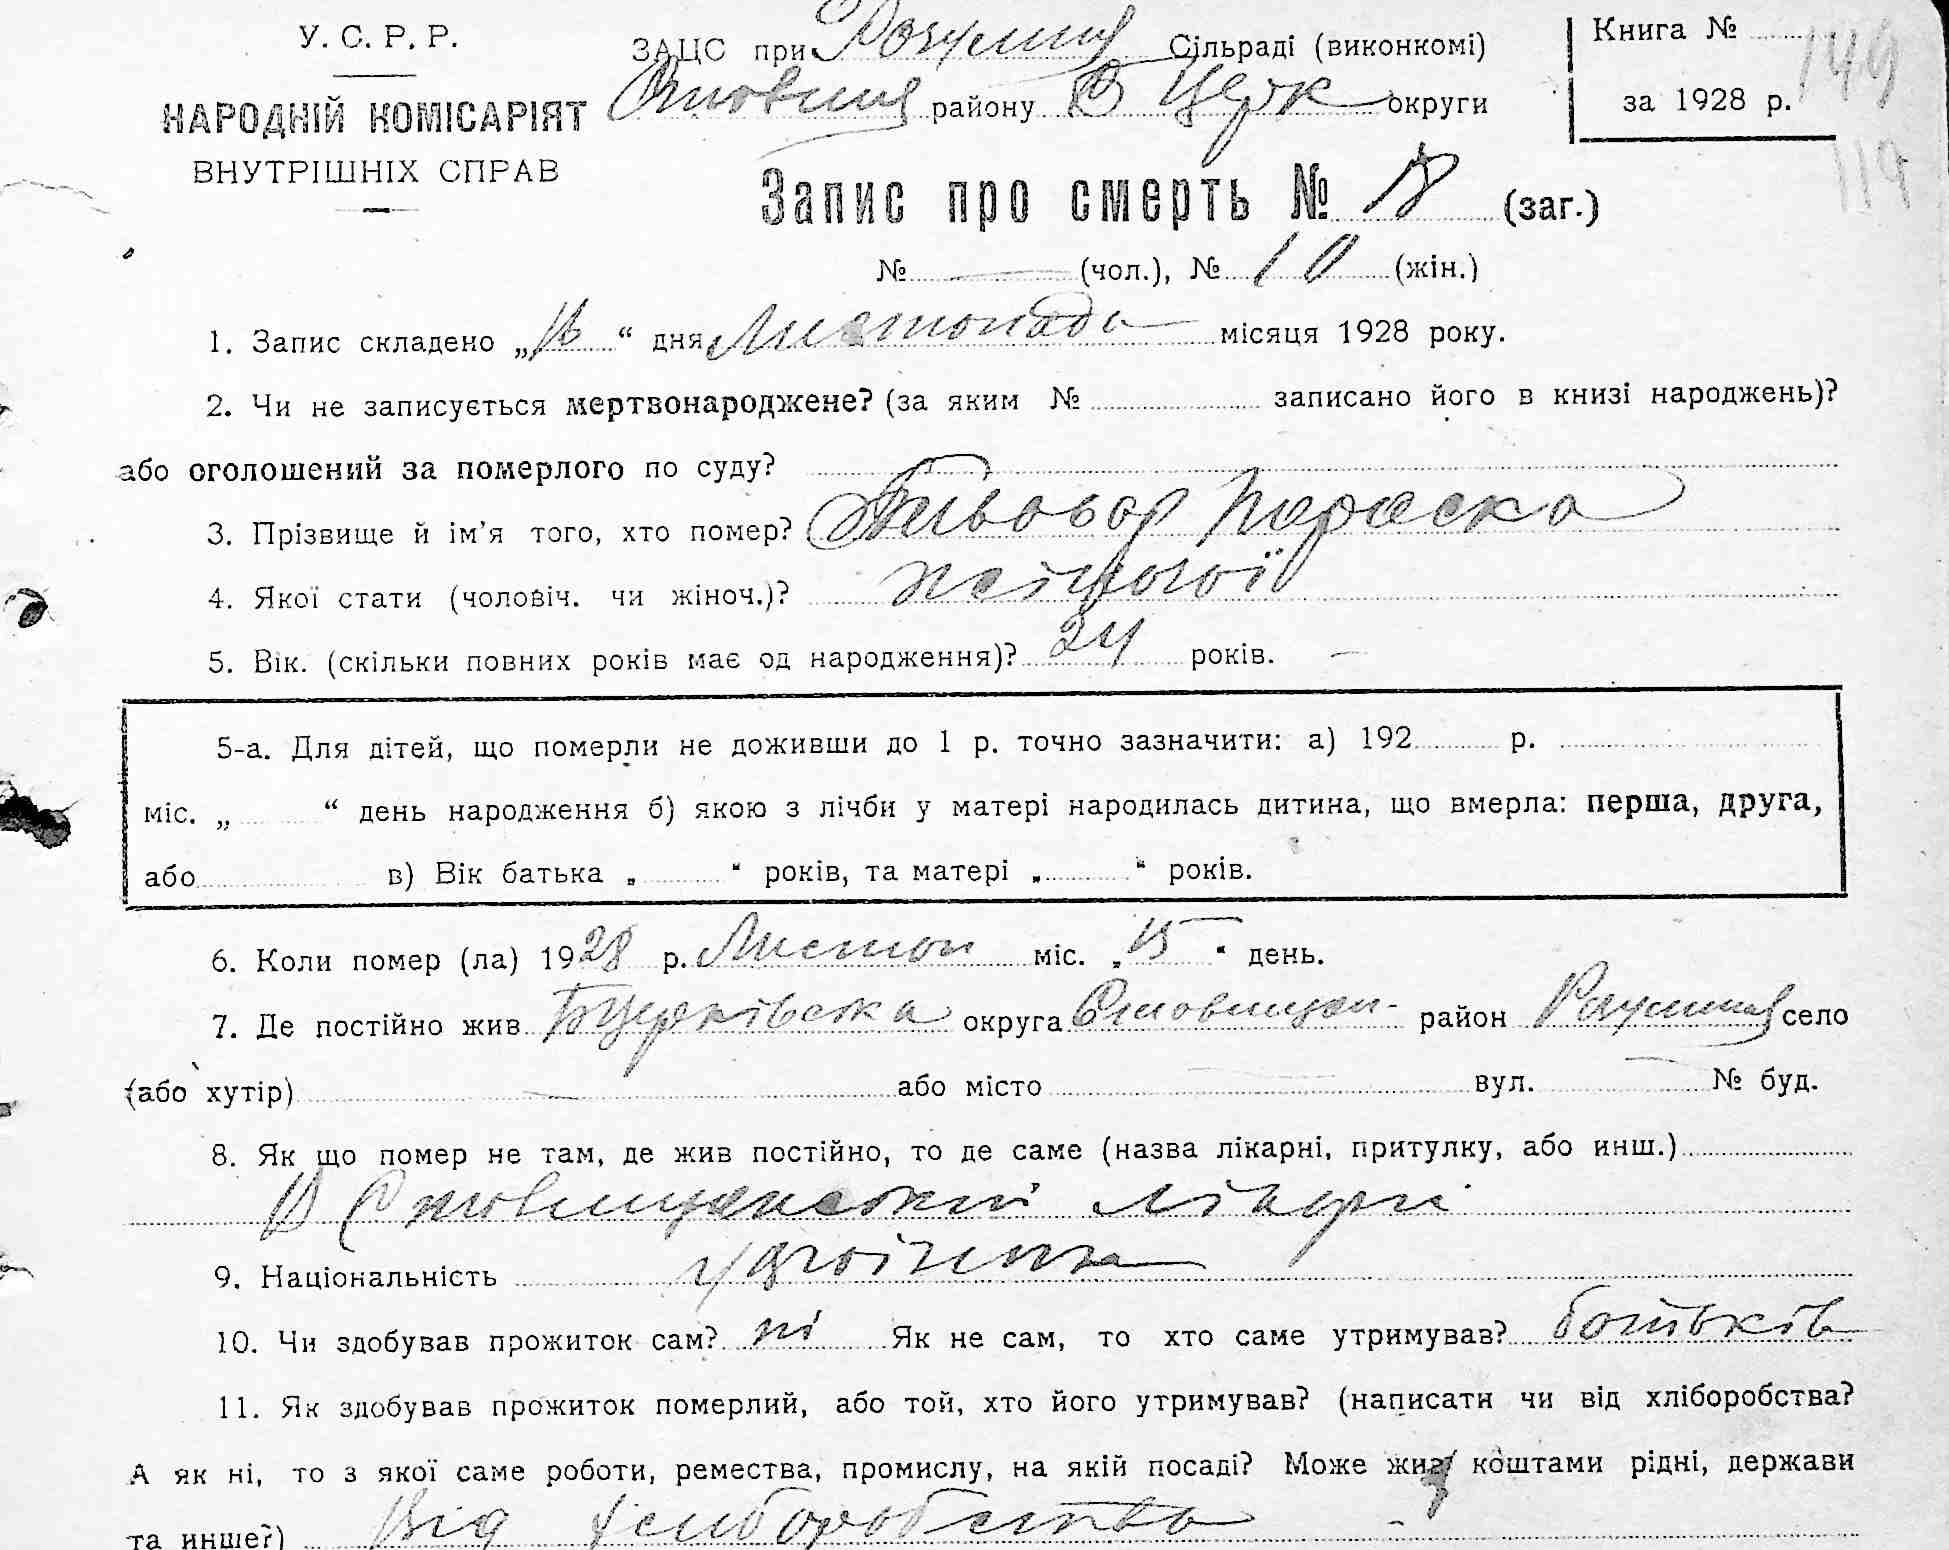 У. С. Р. Р.
НАРОДНІЙ КОМІСАРІЯТ
ВНУТРІШНІХ СПРАВ
ЗАЦС при Сільраді (виконкомі)
району Б Церк округи
Книга №
за 1928 р.
149
119
Запис про смерть № (заг.)
№ — (чол.), № 10 (жін.)
1. Запис складено „16“ дня Листопада місяця 1928 року.
2. Чи не записується мертвонароджене? (за яким № записано його в книзі народжень)?
або оголошений за померлого по суду?
3. Прізвище й ім'я того, хто помер? Параска
4. Якої стати (чоловіч. чи жіноч.)? жіночої
5. Вік. (скільки повних років має од народження)? 24 років. —
5-а. Для дітей, що померли не доживши до 1 р. точно зазначити: а) 192 р.
міс. „ “ день народження б) якою з лічби у матері народилась дитина, що вмерла: перша, друга,
або в) Вік батька „ “ років, та матері „ “ років.
6. Коли помер (ла) 1928 р. Листоп міс. „15“ день.
7. Де постійно жив БЦерківська округа Ставищан- район село
(або хутір) — або місто — вул. — № буд.
8. Як що помер не там, де жив постійно, то де саме (назва лікарні, притулку, або инш.)
В Ставищанській лікарні
9. Національність українка
10. Чи здобував прожиток сам? ні Як не сам, то хто саме утримував? батьків
11. Як здобував прожиток померлий, або той, хто його утримував? (написати чи від хліборобства?
А як ні, то з якої саме роботи, ремества, промислу, на якій посаді? Може жив коштами рідні, держави
та инше?) Від хліборобства